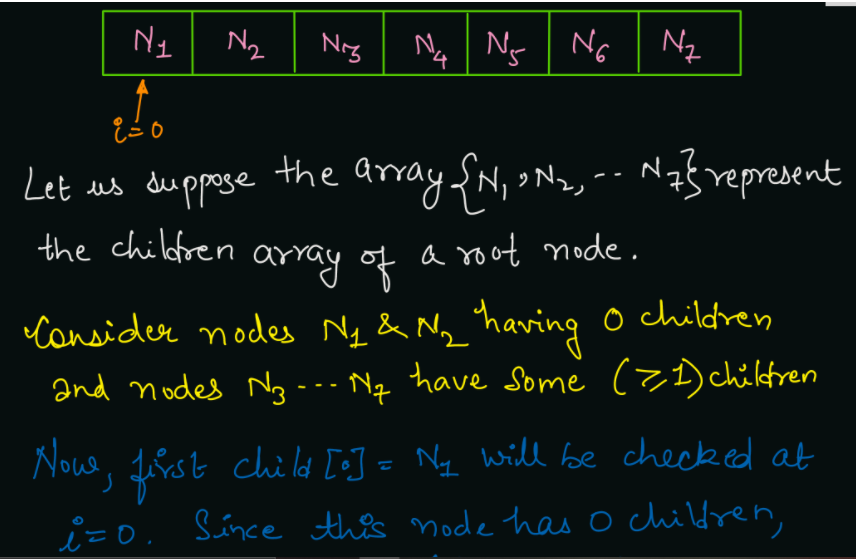 N1 N2 N3 N4 N5 N6 N7
i=0
Let us suppose the array {N1, N2, -- N7} represent
the children array of a root node.
Consider nodes N1 & N2 having 0 children
and nodes N3 --- N7 have some (≥1) children
Now, first child [0] = N1 will be checked at
i=0. Since this node has 0 children,